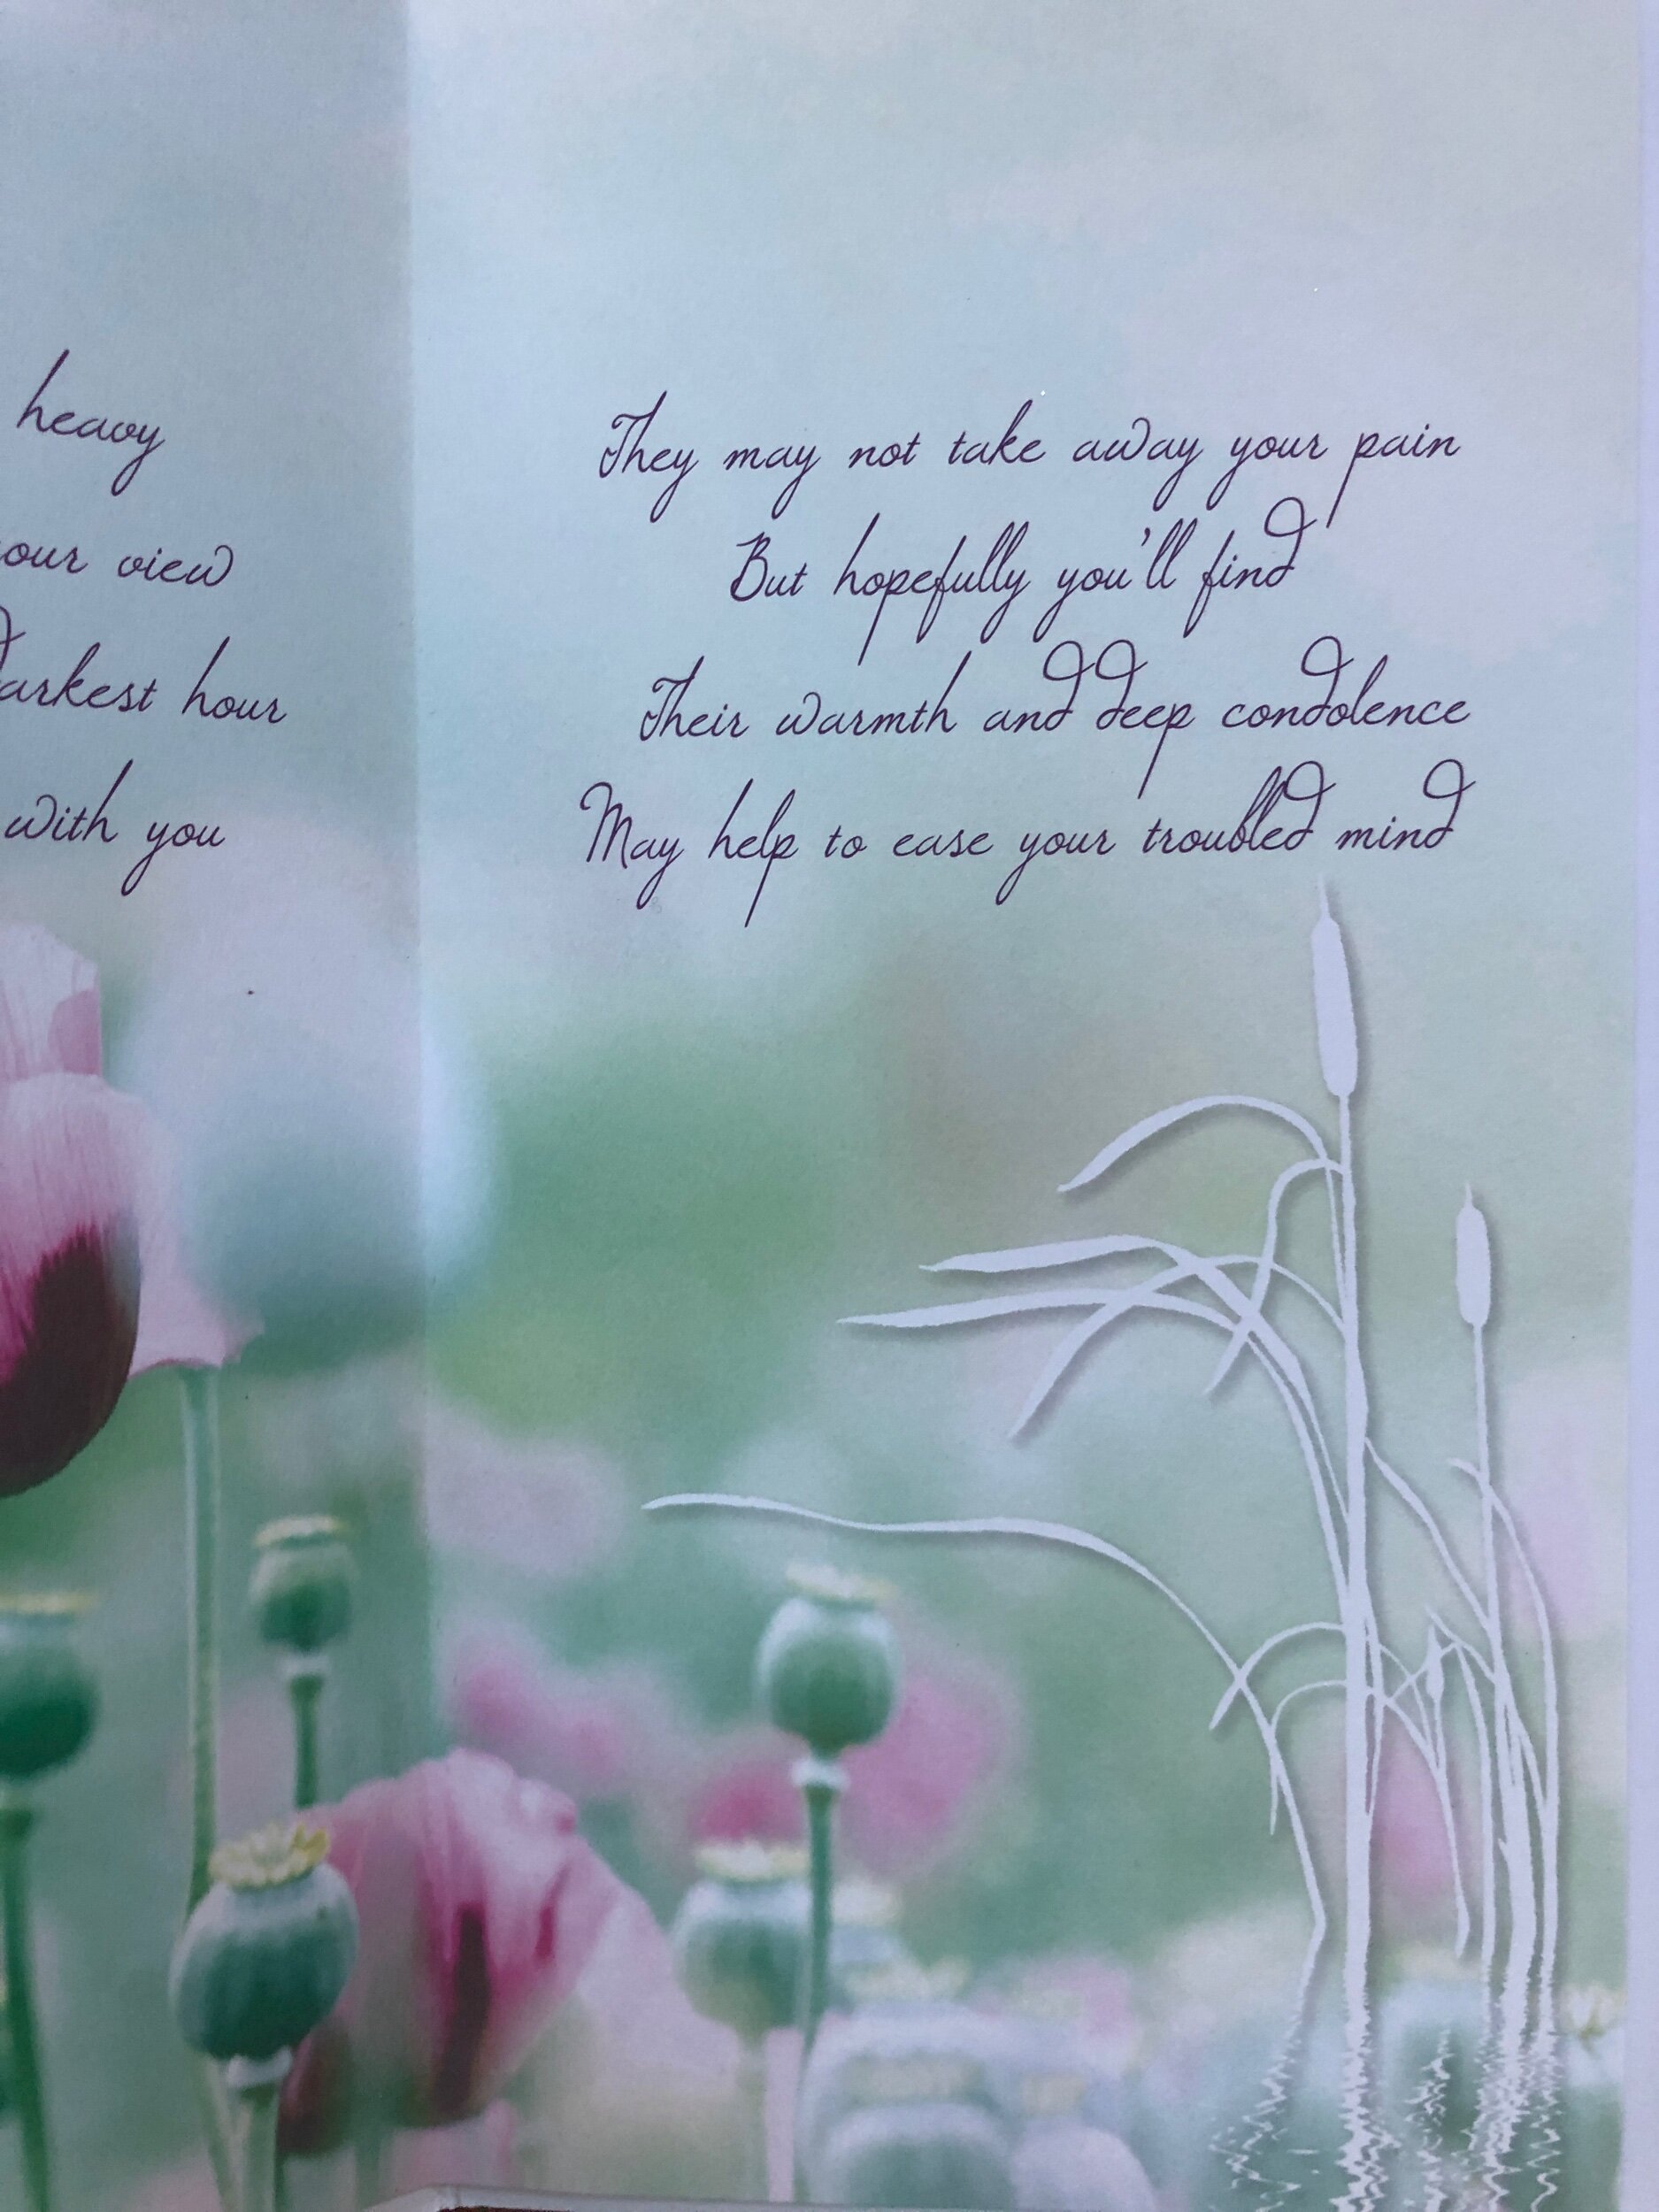 heavy
our view
arkest hour
with you
They may not take away your pain
But hopefully you'll find
Their warmth and deep condolence
May help to ease your troubled mind